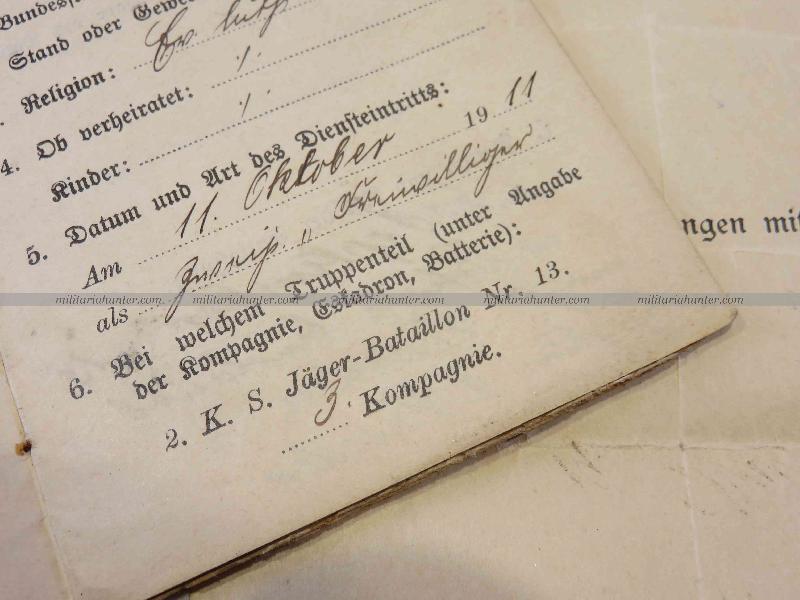 Bundes
Stand oder Gewe
Religion: Ev. luth.
4. Ob verheiratet: /.
Kinder: /.
5. Datum und Art des Diensteintritts:
Am 11. Oktober 19 11
als Freiwilliger
6. Bei welchem Truppenteil (unter Angabe
der Kompagnie, Eskadron, Batterie):
2. K. S. Jäger-Bataillon Nr. 13.
3. Kompagnie.
ngen mit
militariahunter.com militariahunter.com militariahunter.com militariahunter.com militariahunter.com